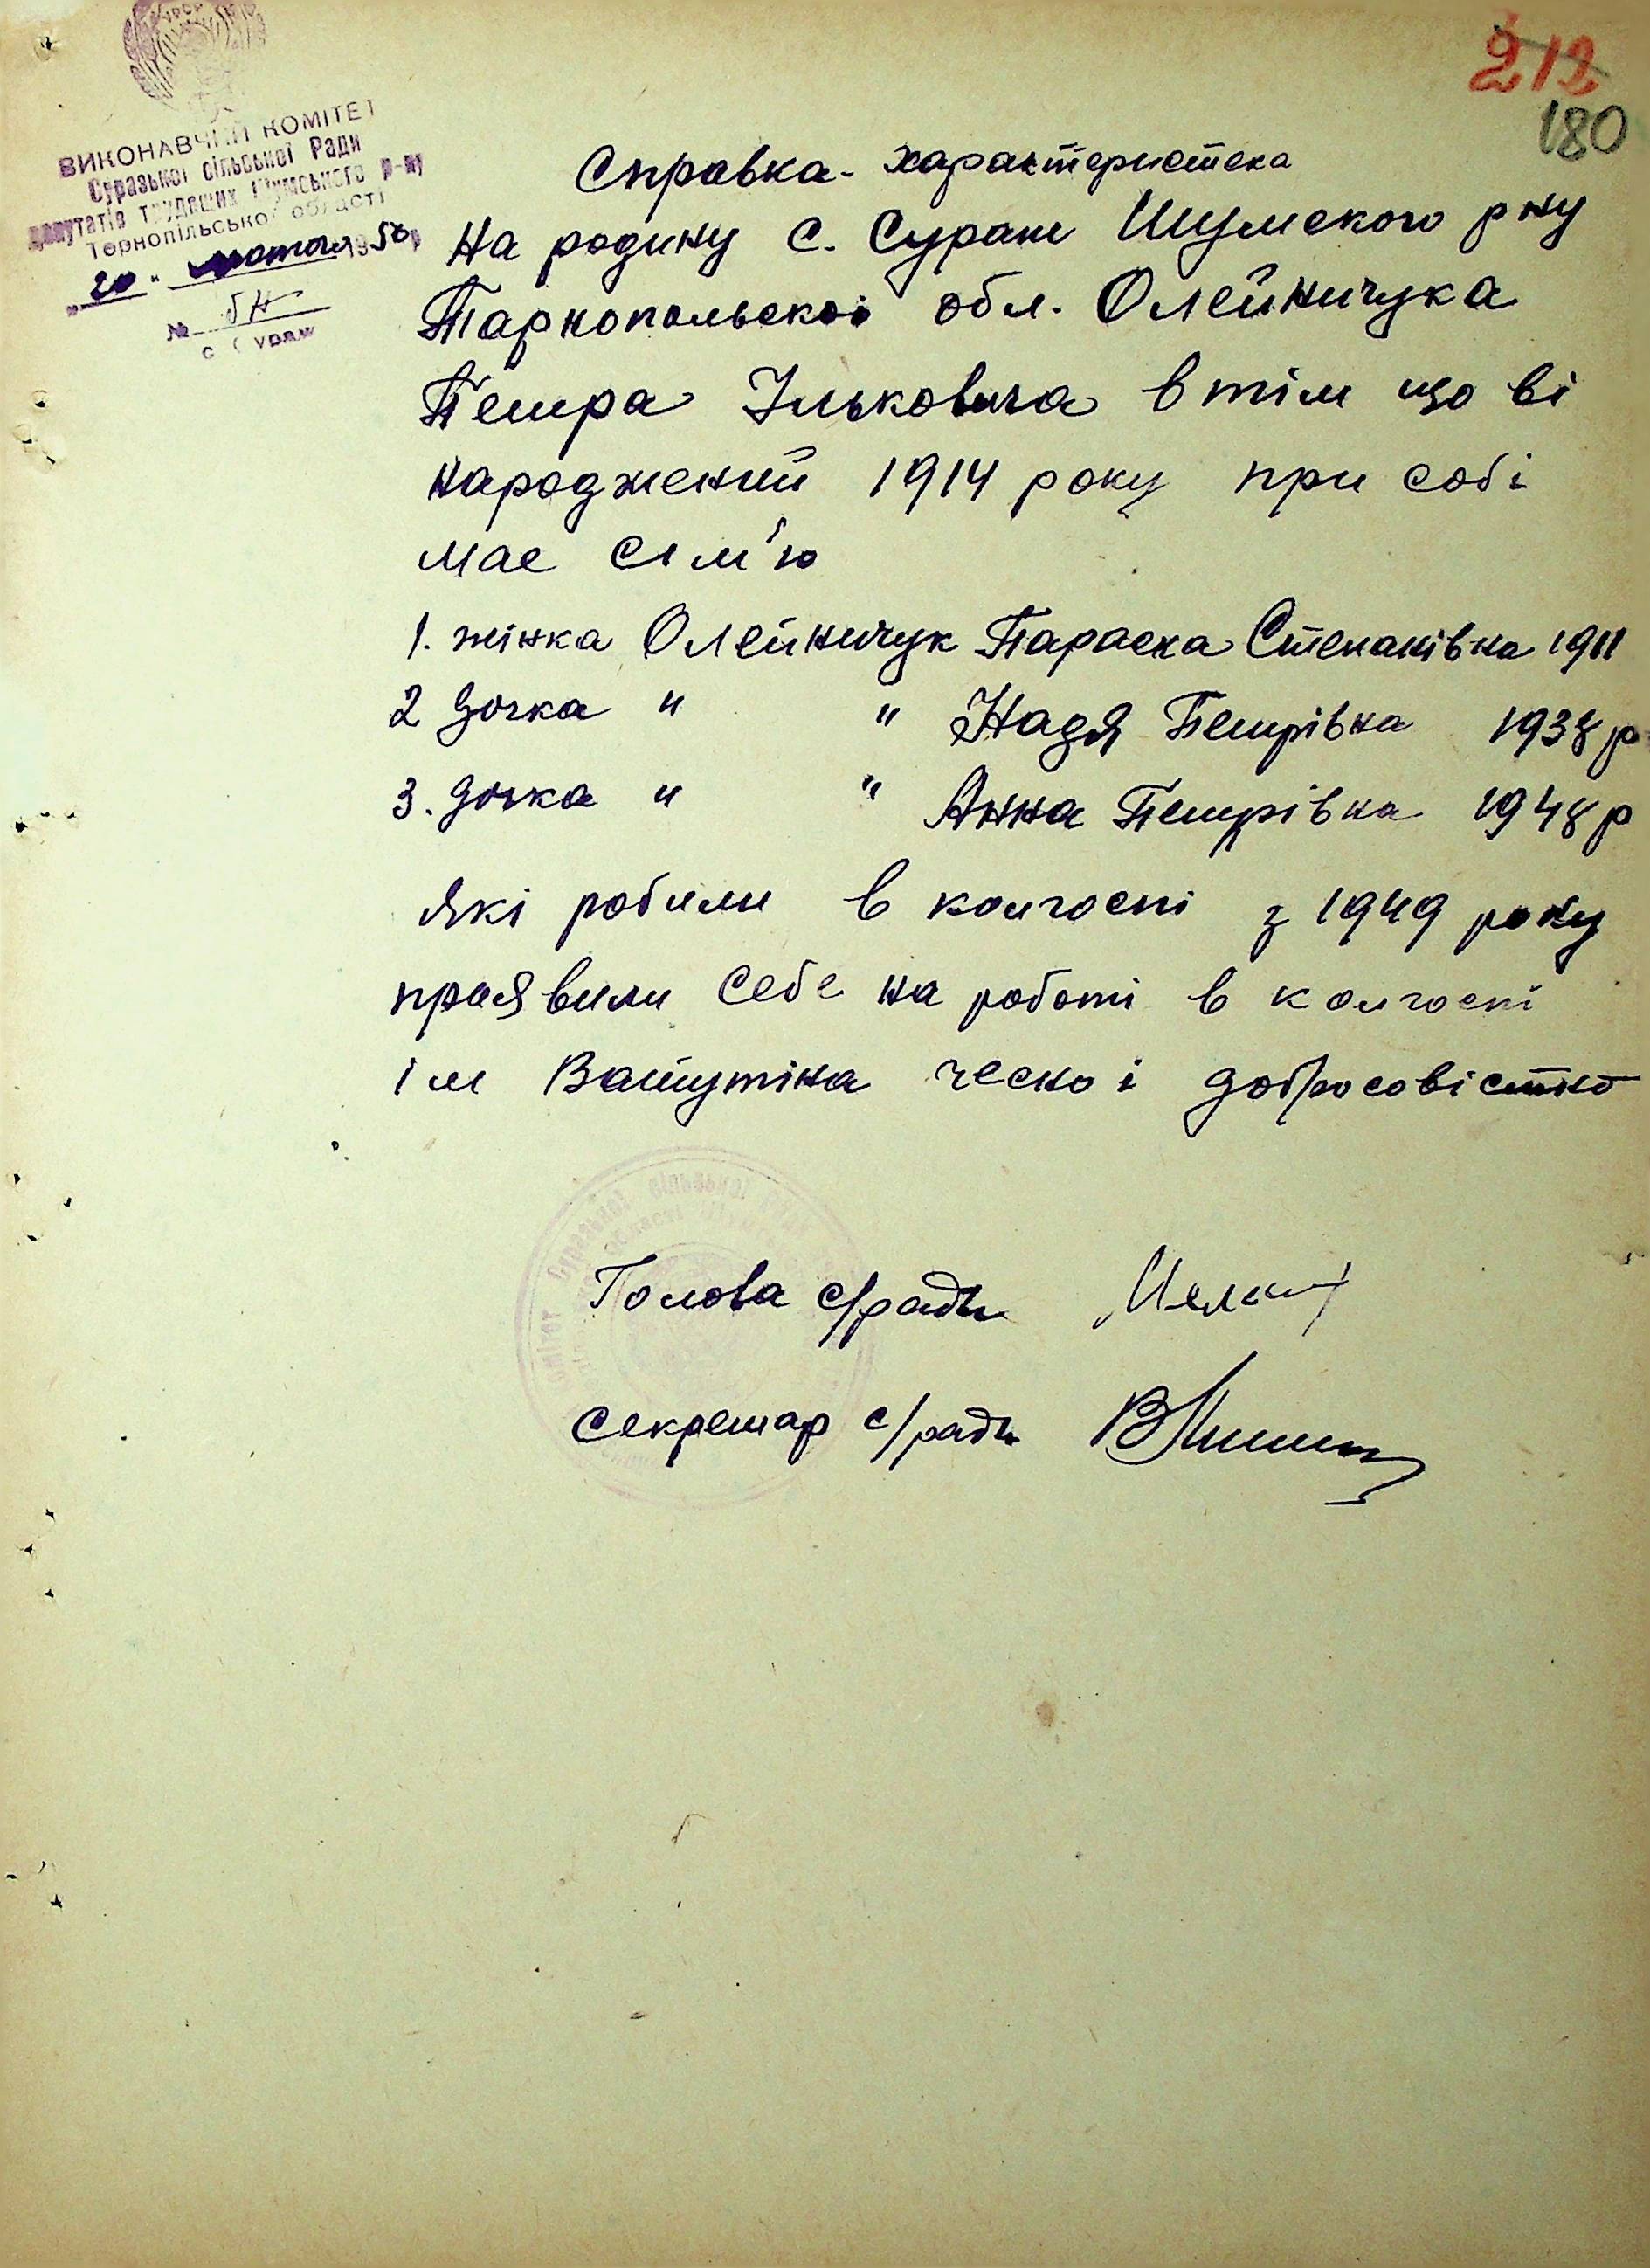 212
180
ВИКОНАВЧИЙ КОМІТЕТ
Суразької сільської Ради
депутатів трудящих Шумського р-ну
Тернопільської області
"20" лютого 1956 р
№ бн
с. Сураж
Справка-характеристека
На родину с. Сураж Шумского рну
Тарнопольской обл. Олейничука
Петра Ільковича в тім що ві
народжений 1914 року при собі
має сім'ю
1. жінка Олейничук Параска Степанівна 1911
2 дочка " " Надя Петрівна 1938 р
3. дочка " " Анна Петрівна 1948 р
які робили в колгоспі з 1949 року
проявили себе на роботі в колгоспі
ім Ватутіна ческо і добросовістно
Голова с/ради
Секретар с/ради